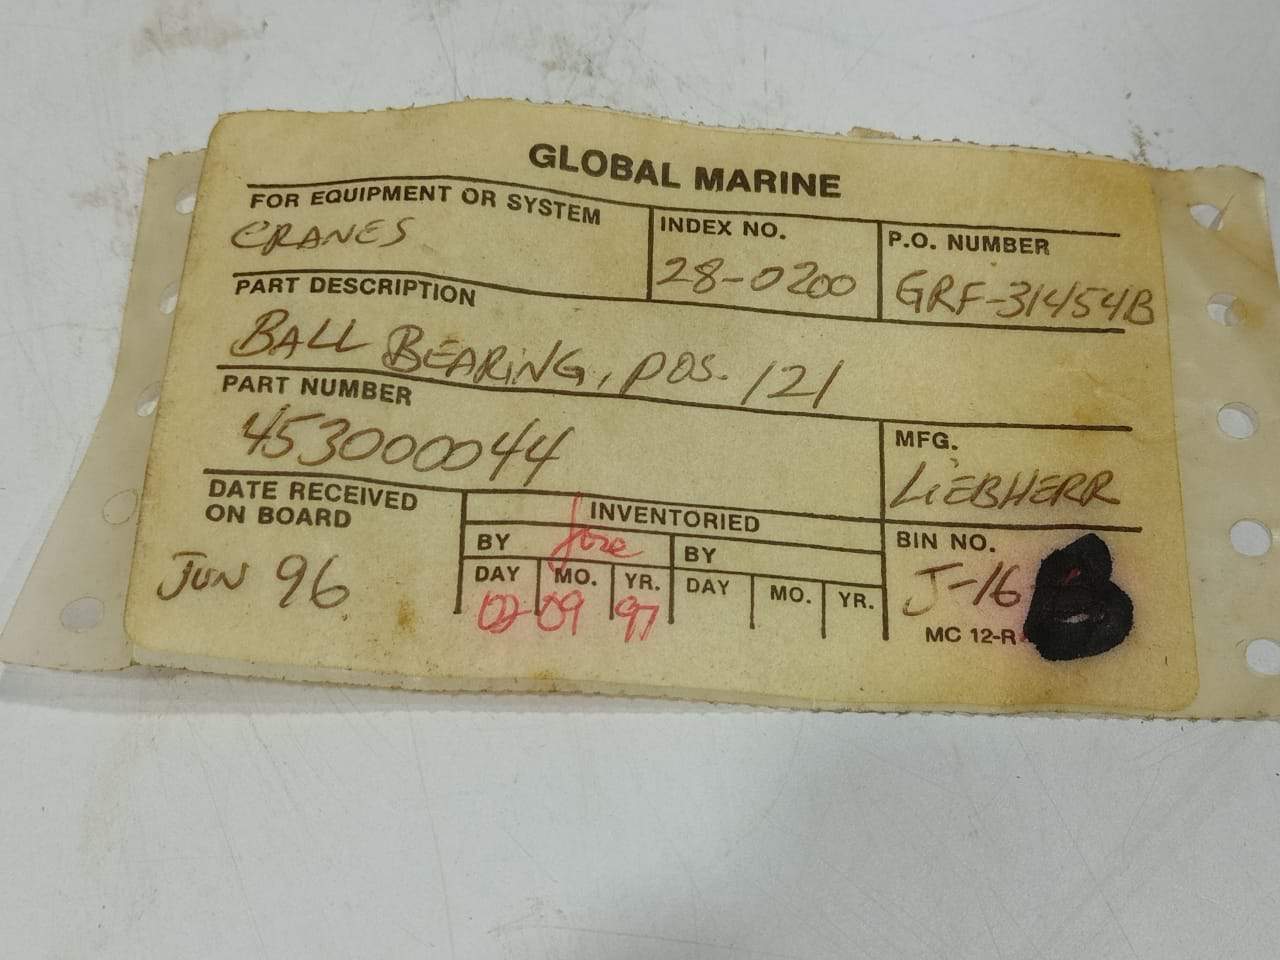 GLOBAL MARINE
FOR EQUIPMENT OR SYSTEM
CRANES
INDEX NO.
28-0200
P.O. NUMBER
GRF-31454B
PART DESCRIPTION
BALL BEARING, POS. 121
PART NUMBER
453000044
MFG.
LIEBHERR
DATE RECEIVED
ON BOARD
JUN 96
INVENTORIED
BY Jose
BY
DAY MO. YR.
09 97
DAY MO. YR.
BIN NO.
J-16
MC 12-R